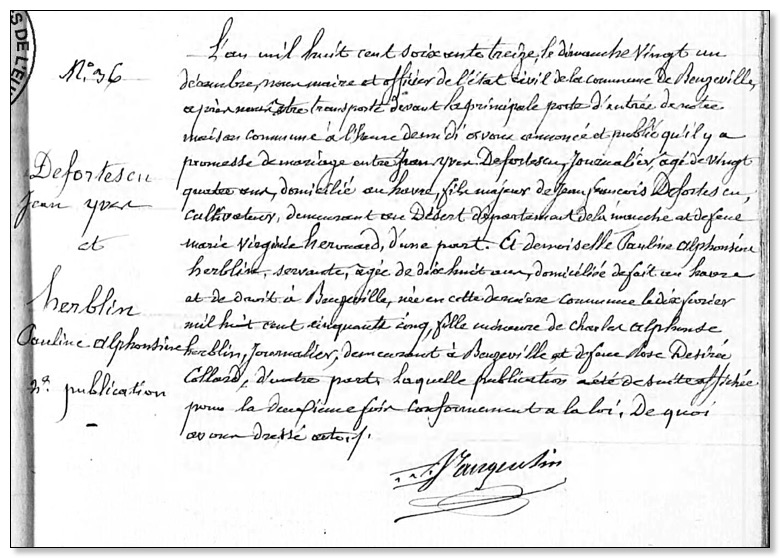 S DE L'EU
N° 36
Defortescu
Jean yver
et
herblin
Pauline alphonsine
2e publication
L'an mil huit cent soixante treize, le dimanche Vingt un
décembre, nous maire et officier de l'état civil de la commune de Beuzeville,
après nous être transporté devant la principale porte d'entrée de notre
maison commune à l'heure de midi avons annoncé et publié qu'il y a
promesse de mariage entre Jean yver Defortescu, Journalier, agé de Vingt
quatre ans, domicilié au havre, fils majeur de Jean francois Defortescu,
cultivateur, demeurant au Désert département de la manche et de feue
marie Virginie herouard, d'une part. Et demoiselle Pauline alphonsine
herblin, servante, agée de dix huit ans, domiciliée de fait au havre
et de droit à Beuzeville, née en cette dernière commune le dix fevrier
mil huit cent cinquante cinq, fille mineure de Charles alphonse
herblin, Journalier, demeurant à Beuzeville et de feue Rose Desirée
Collard, d'autre part. Laquelle publication a été de suite affichée
pour la deuxieme fois conformement a la loi. De quoi
avons dressé acte.